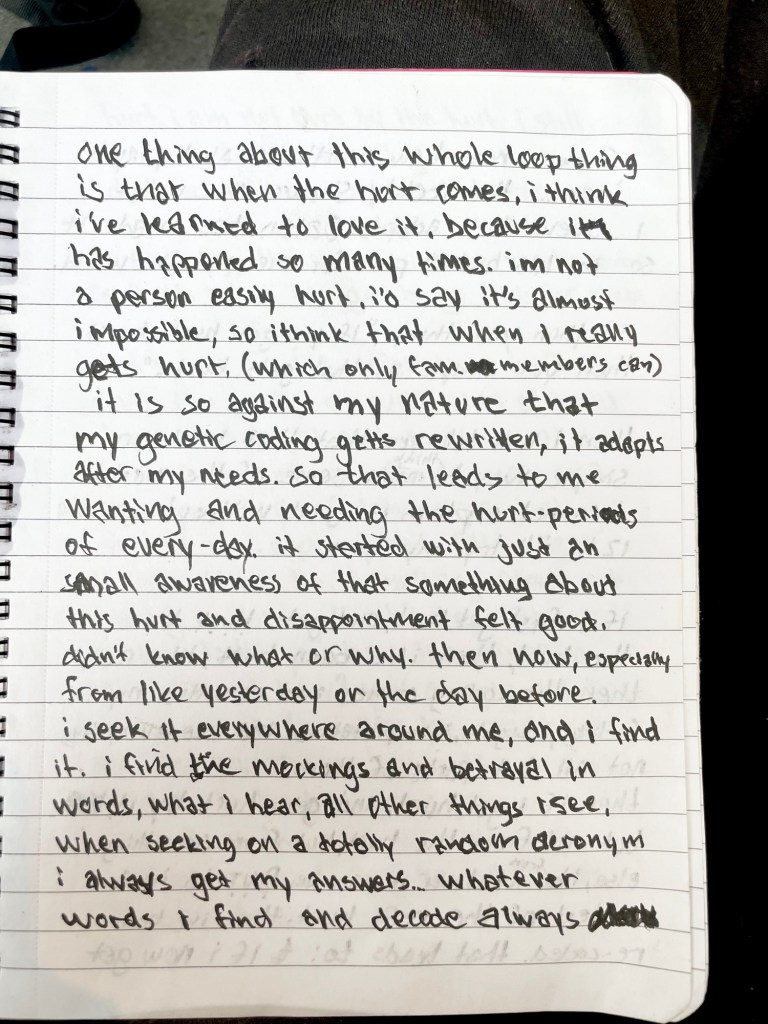 one thing about this whole loop thing
is that when the hurt comes, i think
i've learned to love it. because it
has happened so many times. im not
a person easily hurt. i'd say it's almost
impossible, so ithink that when i really
gets hurt. (which only fam. members can)
it is so against my nature that
my genetic coding getts rewritten, it adapts
after my needs. so that leads to me
wanting and needing the hurt-periods
of every-day. it started with just an
small awareness of that something about
this hurt and disappointment felt good.
didn't know what or why. then now, especially
from like yesterday or the day before.
i seek it everywhere around me, and i find
it. i find the mockings and betrayal in
words, what i hear, all other things i see.
when seeking on a totally random acronym
i always get my answers... whatever
words i find and decode always